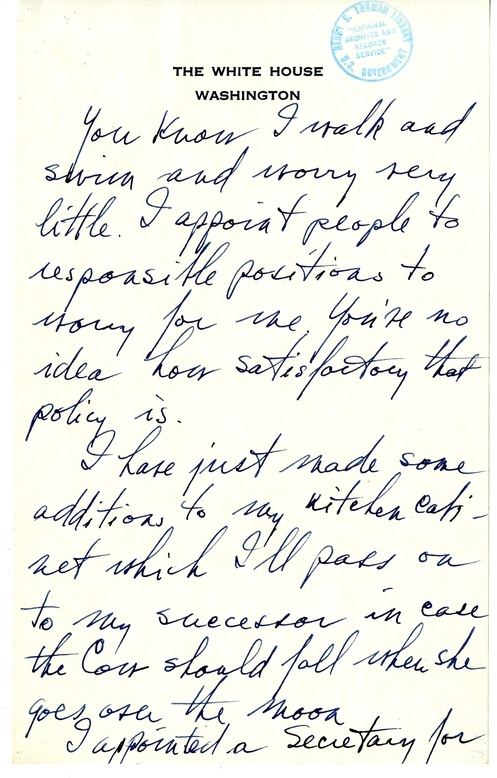 HARRY S. TRUMAN LIBRARY
"NATIONAL
ARCHIVES AND
RECORDS
SERVICE"
U.S. GOVERNMENT
THE WHITE HOUSE
WASHINGTON
You Know I walk and
swim and worry very
little. I appoint people to
responsible positions to
worry for me. You've no
idea how satisfactory that
policy is.
I have just made some
additions to my Kitchen Cabi-
net which I'll pass on
to my successor in case
the Cow should fall when she
goes over the moon
I appointed a Secretary for